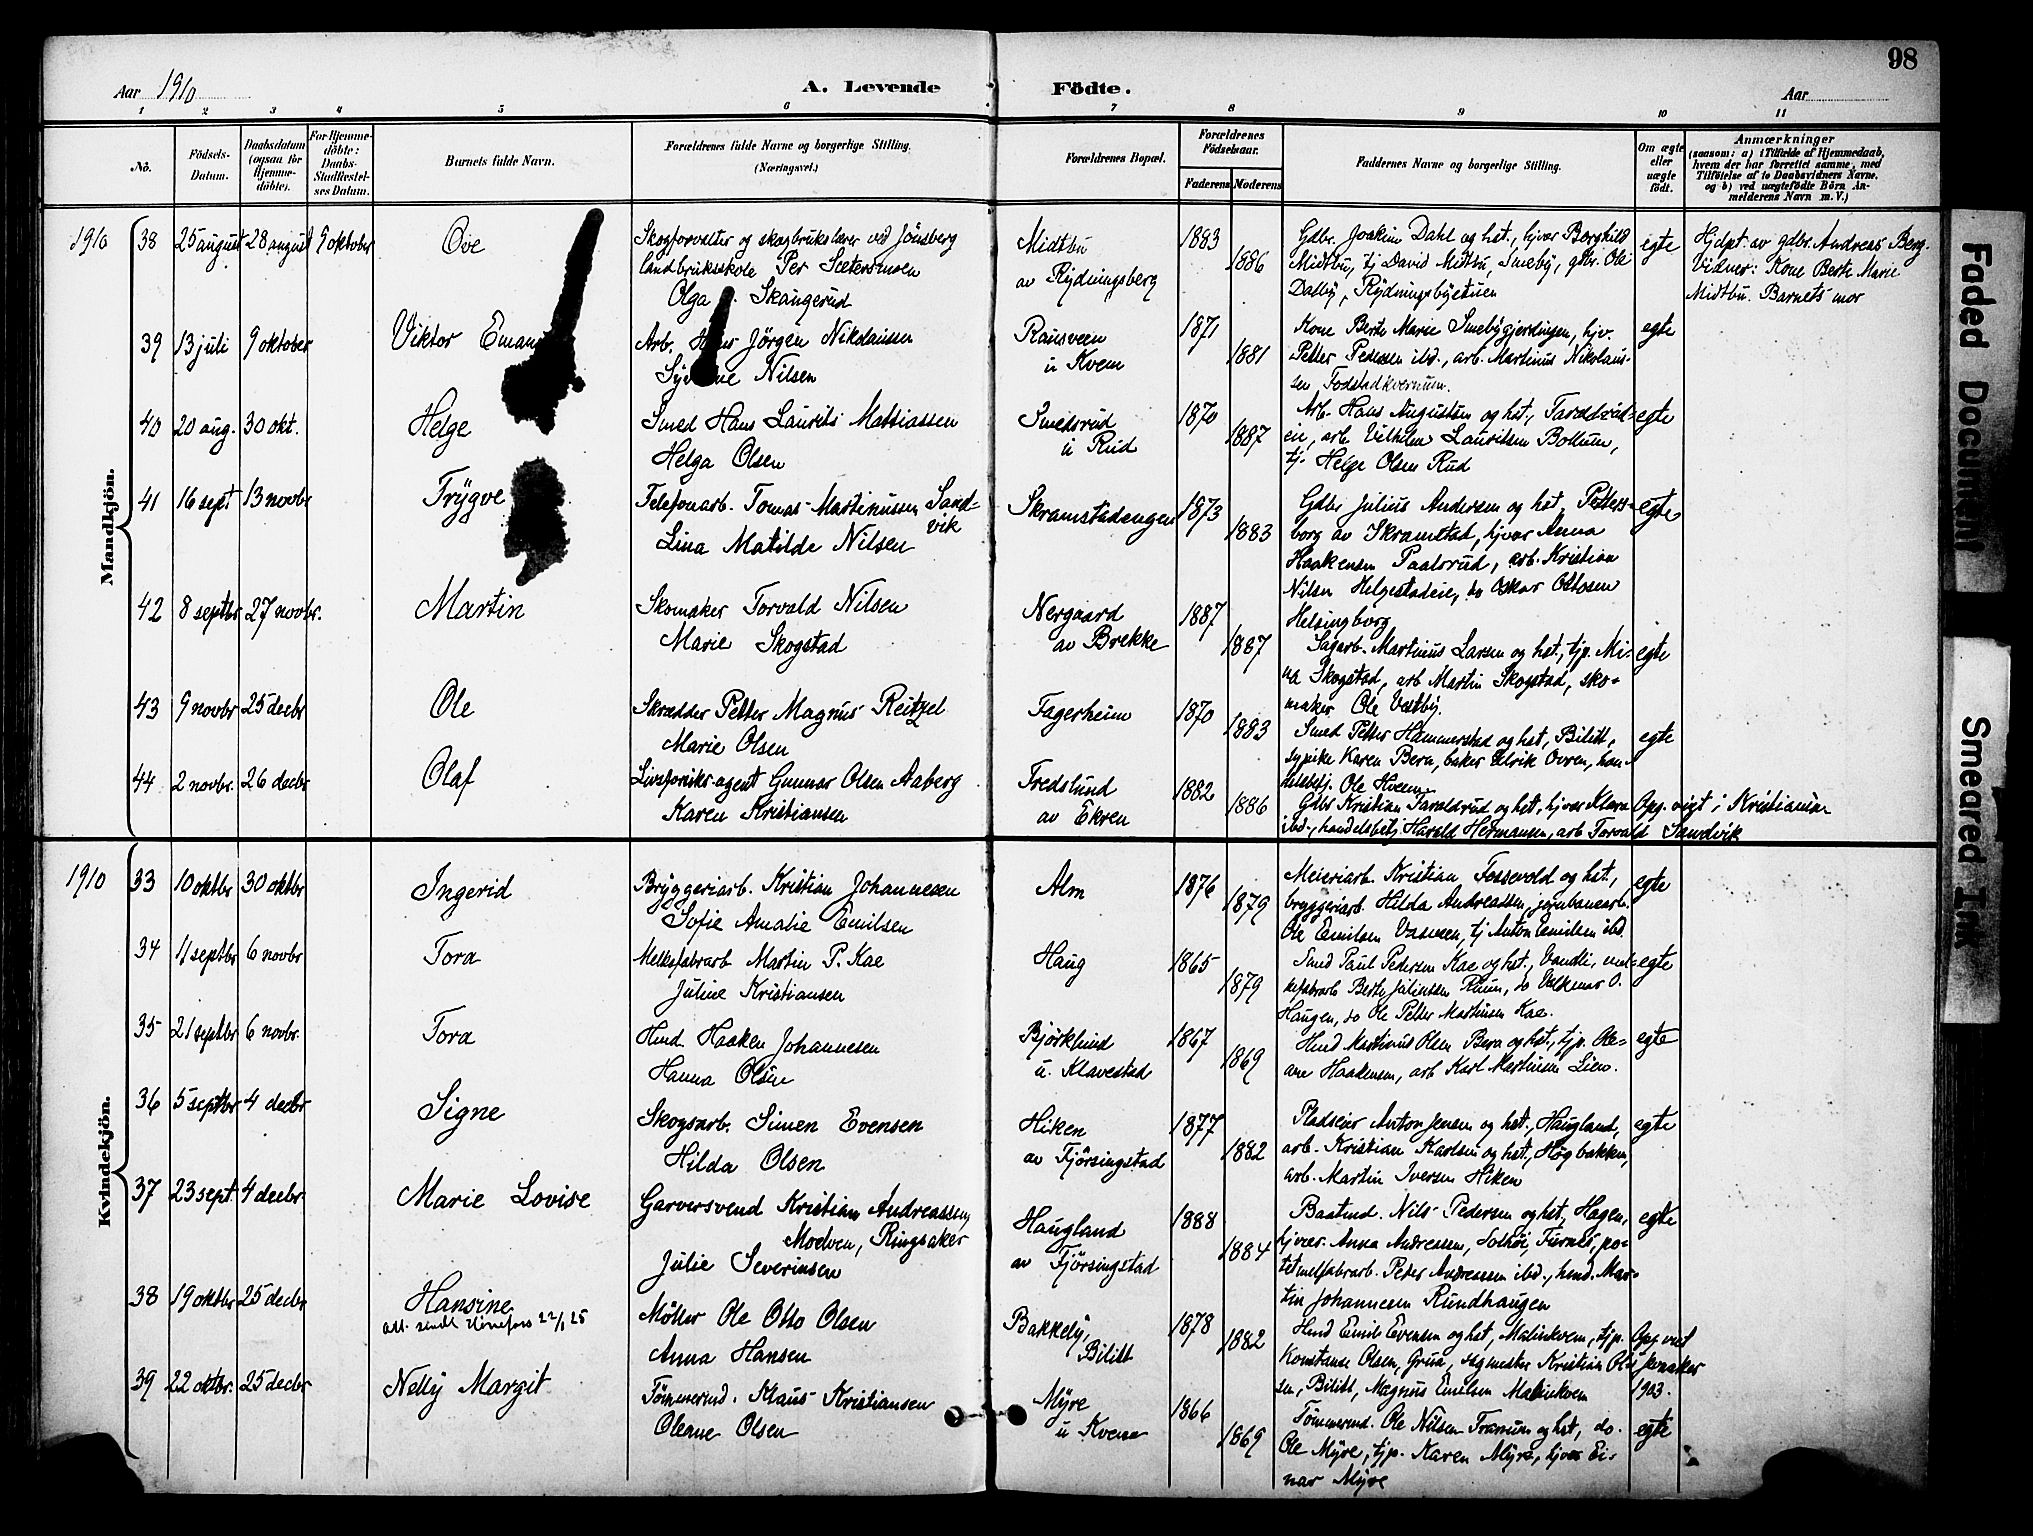 98
Aar 1910 A. Levende Födte. Aar
1 2 3 4 5 6 7 8 9 10 11
No.
Födsels-Datum.
Daabsdatum (ogsaa for Hjemme-döbte).
For Hjemme-döbte: Daabs-Stadfæstel-ses Datum.
Barnets fulde Navn.
Forældrenes fulde Navne og borgerlige Stilling.
(Næringsvei.)
Forældrenes Bopæl.
Forældrenes Födselsaar.
Faderens Moderens
Faddernes Navne og borgerlige Stilling.
Om ægte eller uægte födt.
Anmærkninger
(saasom: a) i Tilfælde af Hjemmedaab, hvem der har forrettet samme, med Tilföielse af to Daabsvidners Navne, og b) ved uægtefödte Börn Anmelderens Navn m. V.)
Mandkjön.
1910 38 25 august 28 august 9 oktober Ove
Skogforvalter og skogbrukslærer ved Jönsberg
landbruksskole Per Sætersmoen
Olga Skaugerud
Midtbu
av Rydningsberg
1883 1886
Gdbr. Joakim Dahl og hst., hjvær Borghild
Midtbu, tj David Midtbu, Smeby, gbr. Ole
Dalby, Rydningsbyetuen
egte
Hjdpt. av gdbr. Andreas Berg.
Vidner: Kone Berte Marie
Midtbu. Barnets mor
39 13 juli 9 oktober Viktor Eman
Arb. Hans Jörgen Nikolaisen
Nilsen
u Kvem
1871 1881
Kone Berte Marie Smebygjerdingen, hjv.
Petter Pedersen ibd., arb. Martinus Nikolais-
sen, Fodstadkvernum.
egte
40 20 aug. 30 okt. Helge
Smed Hans Laurits Mattiassen
Helga Olsen
Smedsrud
u Rud
1870 1887
Arb. Hans Augustsen og hst., Taraldrud-
eie, arb. Vilhelm Lauritsen Bollum,
tj. Helge Olsen Rud
egte
41 16 sept 13 novbr Trygve
Telefonarb. Tomas Martinussen Sand-
vik
Lina Matilde Nilsen
Skramstadengen
1873 1883
Gdbr Julius Andersen og hst, Petters-
borg av Skramstad, hjvær Anna
Haakensen Paalsrud, arb. Kristian
Nilsen Helgestadeie, do Oskar Ottosen
Helsingborg
egte
42 8 septbr 27 novbr. Martin
Skomaker Torvald Nilsen
Marie Skogstad
Nergaard
av Brekke
1887 1887
Sagarb. Martinius Larsen og hst., tjp. Mi-
na Skogstad, arb Martin Skogstad, sko-
maker Ole Vestby.
egte
43 9 novbr 25 decbr Ole
Skrædder Petter Magnus Reitzel
Marie Olsen
Fagerheim
1870 1883
Smed Petter Hammerstad og hst, Bilitt,
sypike Karen Bera, baker Ulrik Ovren, han-
delsbetj. Ole Hveem
egte
44 2 novbr. 26 decbr Olaf
Livsforsikr-agent Gunnar Olsen Aaberg
Karen Kristiansen
Fredslund
av Ekren
1882 1886
Gdbr Kristian Taraldrud og hst, hjvær Klara
ibd., handelsbetj Harald Hermansen, arb Torvald Sandvik
Opg. vigt i Kristiania
Kvindekjön.
1910 33 10 oktbr 30 oktbr Ingerid
Bryggeriarb. Kristian Johannesen
Sofie Amalie Emilsen
Alm
1876 1879
Meieriarb. Kristian Fossevold og hst.,
bryggeriarb. Hilda Andreassen, jernbanearb.
Ole Emilsen, tj Anton Emilsen ibd
egte
34 11 septbr 6 novbr Tora
Melkefabrarb Martin P. Kae
Juline Kristiansen
Haug
1865 1879
Smed Paul Pedersen Kae og hst., Vandli, mel-
kefabrarb Berte Julinssen Ruun, do Volkmar O.
Haugen, do Ole Petter Martinsen Kae.
egte
35 21 septbr 6 novbr. Tora
Hmd. Haaken Johannesen
Hanna Olsen
Björklund
u. Klavestad
1867 1869
Hmd Martinus Olsen Bera og hst., tjp. Ole-
ane Haakensen, arb Karl Martinsen Lien.
egte
36 5 septbr 4 decbr Signe
Skogsarb. Simen Evensen
Hilda Olsen
Hiken
av Fjörsingstad
1877 1882
Pladseier Anton Jensen og hst., Haugland,
arb. Kristian Karlsen og hst., Högbakken,
arb. Martin Iversen Hiken
egte
37 23 sept. 4 decbr Marie Lovise
Garversvend Kristian Andreassen,
Moelven, Ringsaker
Julie Severinsen
Haugland
av Fjörsingstad
1888 1884
Baatmd. Nils Pedersen og hst, Hagen,
hjvær. Anna Andreassen, Solhöi, Furnes, po-
tetmelfabrarb. Peder Andreassen ibd., hmd. Mar-
tin Johannesen Rundhaugen
egte
38 19 oktbr 25 decbr Hansine
att. sendt Hönefoss 22/1 25
Möller Ole Otto Olsen
Anna Hansen
Bakkely,
Bilitt
1878 1882
Hmd Emil Evensen og hst, Malinkvem, tjp.
Konstanse Olsen, Grua, sagmester Kristian Ol-
sen, Bilitt, Magnus Emilsen Malinkvem
Opg viet
i Jevnaker
1903.
39 22 oktbr. 25 decbr Nelly Margit
Tömmermd. Klaus Kristiansen
Oleane Olsen
Myre
u Kvem
1866 1869
Tömmermd. Ole Nilsen Framum og hst, do.
Ole Myre, tjp. Karen Myre, hjvær Ei-
nar Myre
egte
Faded Document
Smeared Ink